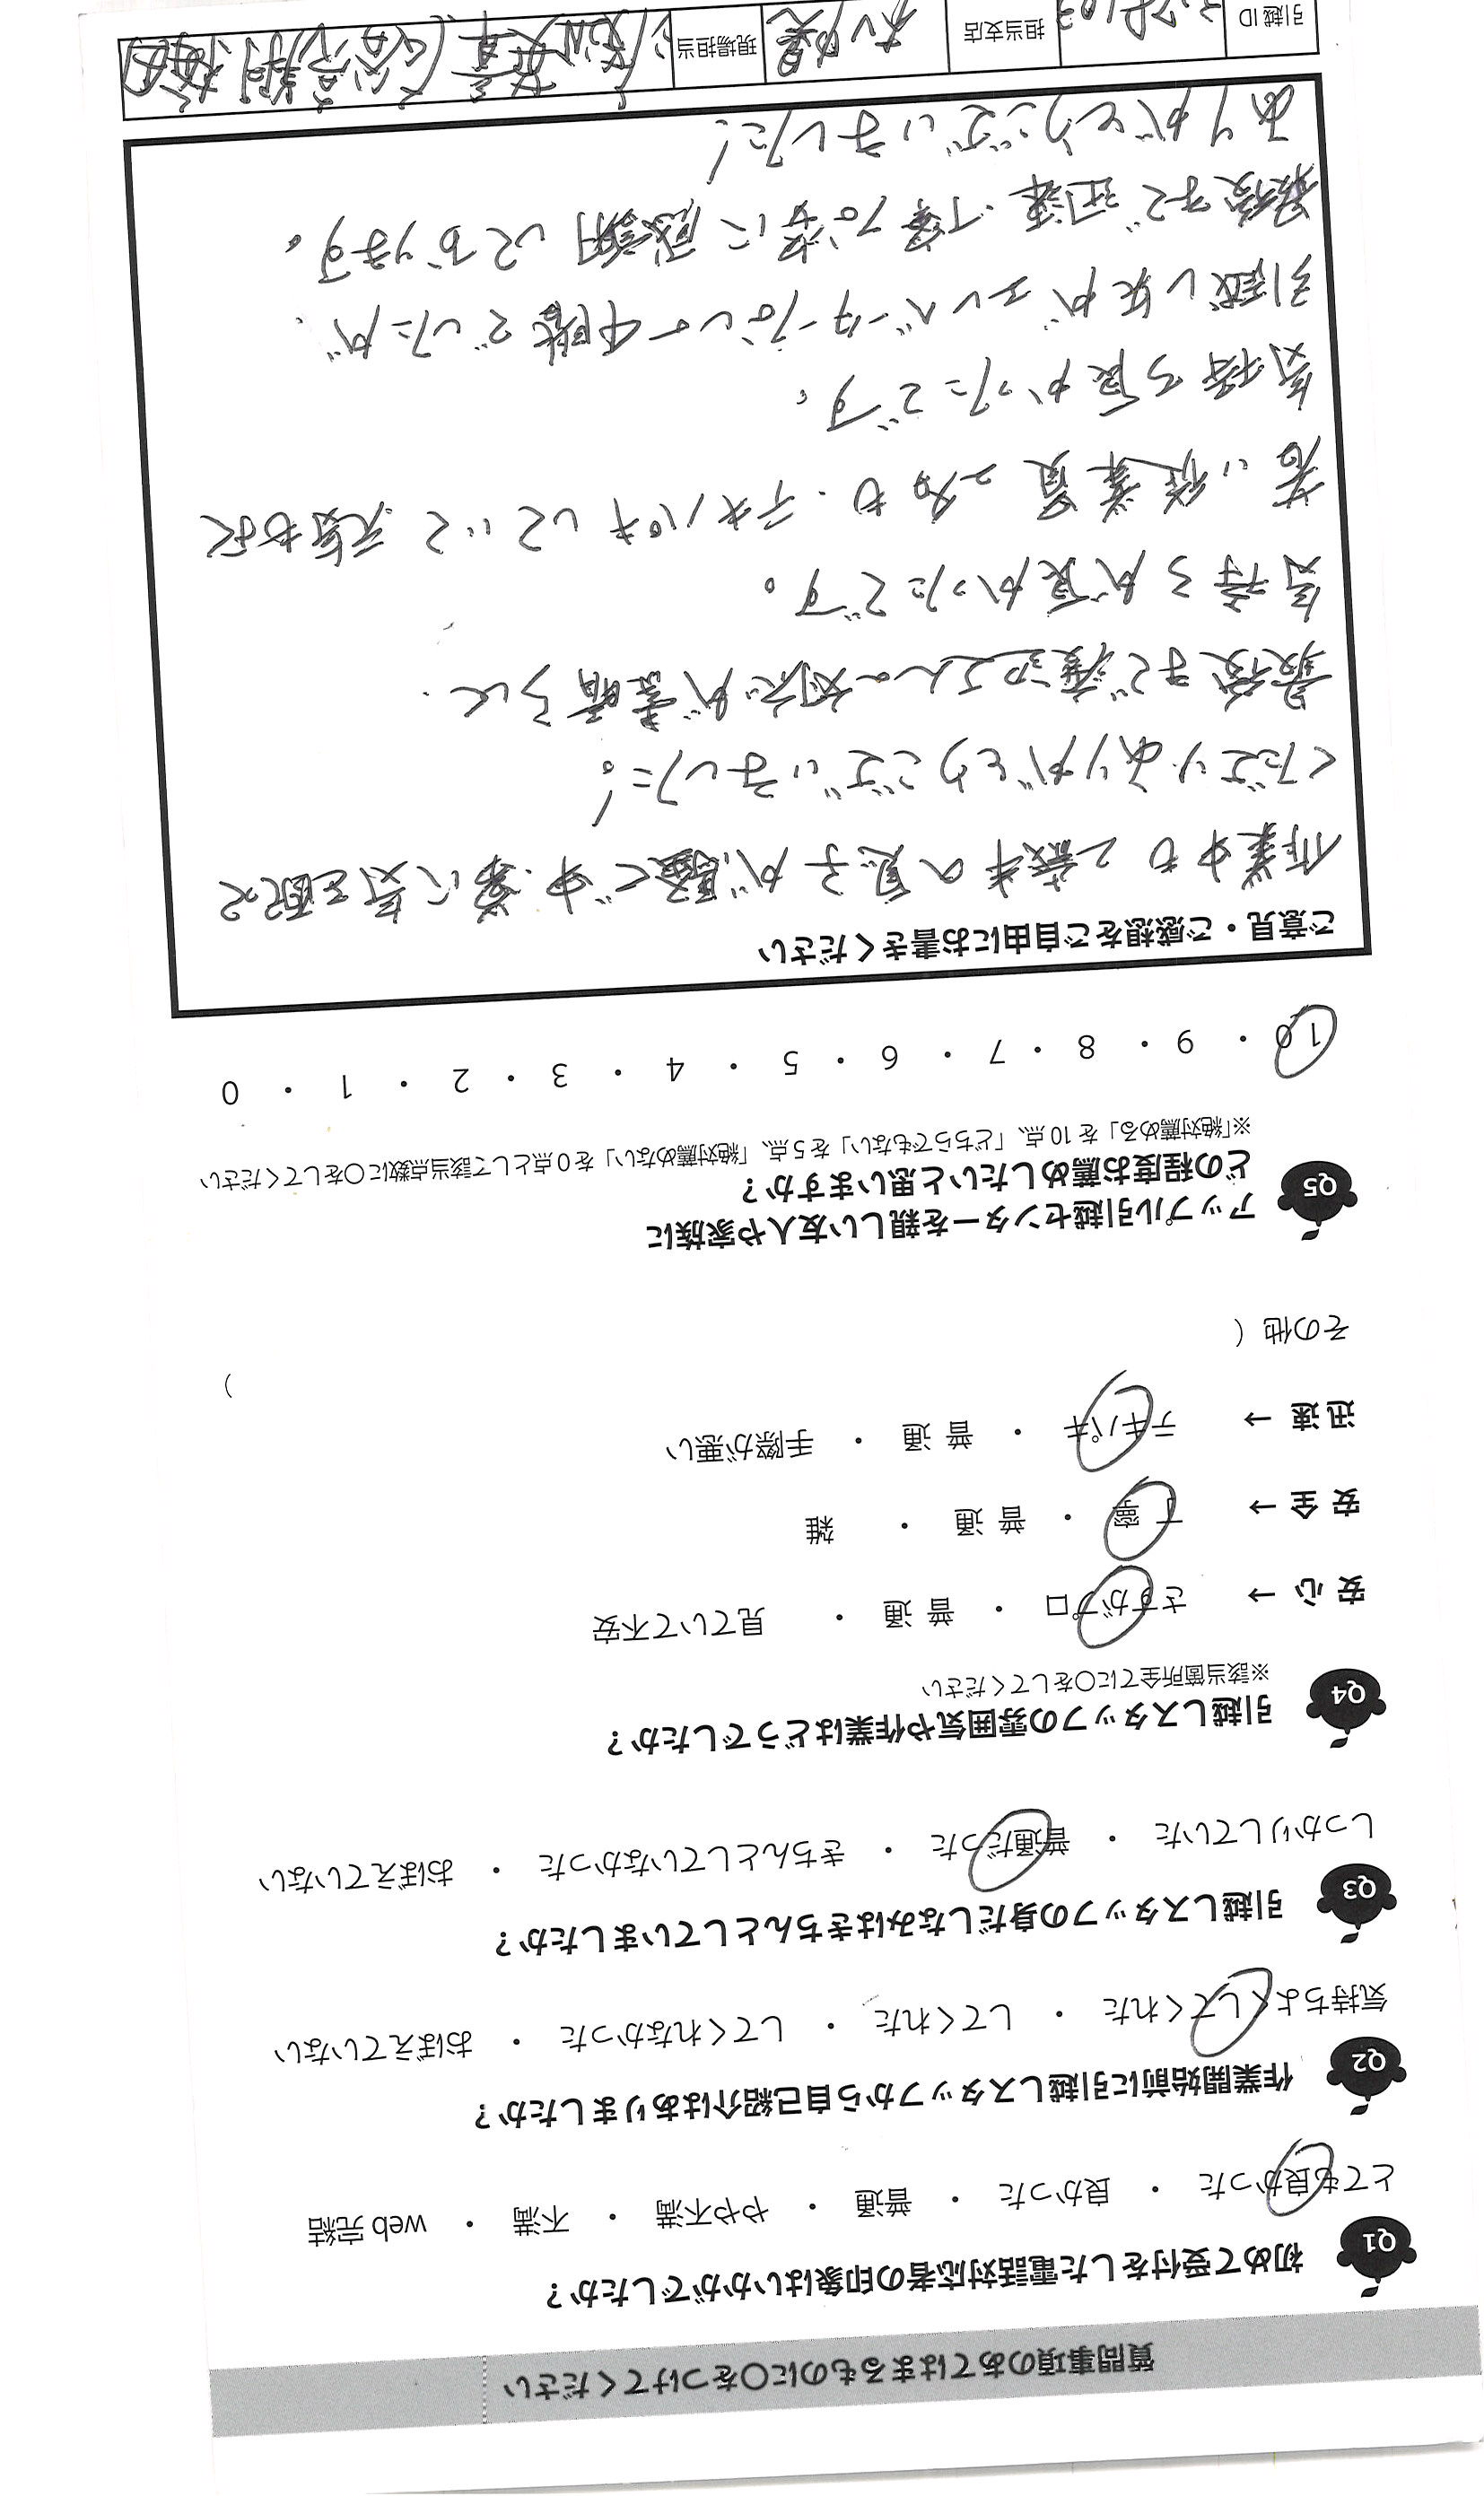 質問事項のあてはまるものに○をつけてください
Q1 初めて受付をした電話対応者の印象はいかがでしたか？
とても良かった ・ 良かった ・ 普通 ・ やや不満 ・ 不満 ・ web 完結
Q2 作業開始前に引越しスタッフから自己紹介はありましたか？
気持ちよくしてくれた ・ してくれた ・ してくれなかった ・ おぼえていない
Q3 引越しスタッフの身だしなみはきちんとしていましたか？
しっかりしていた ・ 普通だった ・ きちんとしていなかった ・ おぼえていない
Q4 引越しスタッフの雰囲気や作業はどうでしたか？
※該当箇所全てに○をしてください
安 心 → さすがプロ ・ 普 通 ・ 見ていて不安
安 全 → 丁 寧 ・ 普 通 ・ 雑
迅 速 → テキパキ ・ 普 通 ・ 手際が悪い
その他 （ ）
Q5 アップル引越センターを親しい友人や家族に
どの程度お薦めしたいと思いますか？
※「絶対薦める」を 10 点、「どちらでもない」を 5 点、「絶対薦めない」を 0 点として該当点数に○をしてください
10 ・ 9 ・ 8 ・ 7 ・ 6 ・ 5 ・ 4 ・ 3 ・ 2 ・ 1 ・ 0
ご意見・ご感想をご自由にお書きください
作業中も2歳半の息子が騒ぐ中、常に気を配って
くださりありがとうございました！。
最後まで渡辺さんの対応が素晴らしく、
気持ちが良かったです。
若い従業員2名も、テキパキしていて、元気も良く
気持ち良かったです。
引越し先がエレベーターなしの4階でしたが、
最後まで迅速、丁寧な姿に感謝しております。
ありがとうございました！
引越 ID
担当支店
現場担当